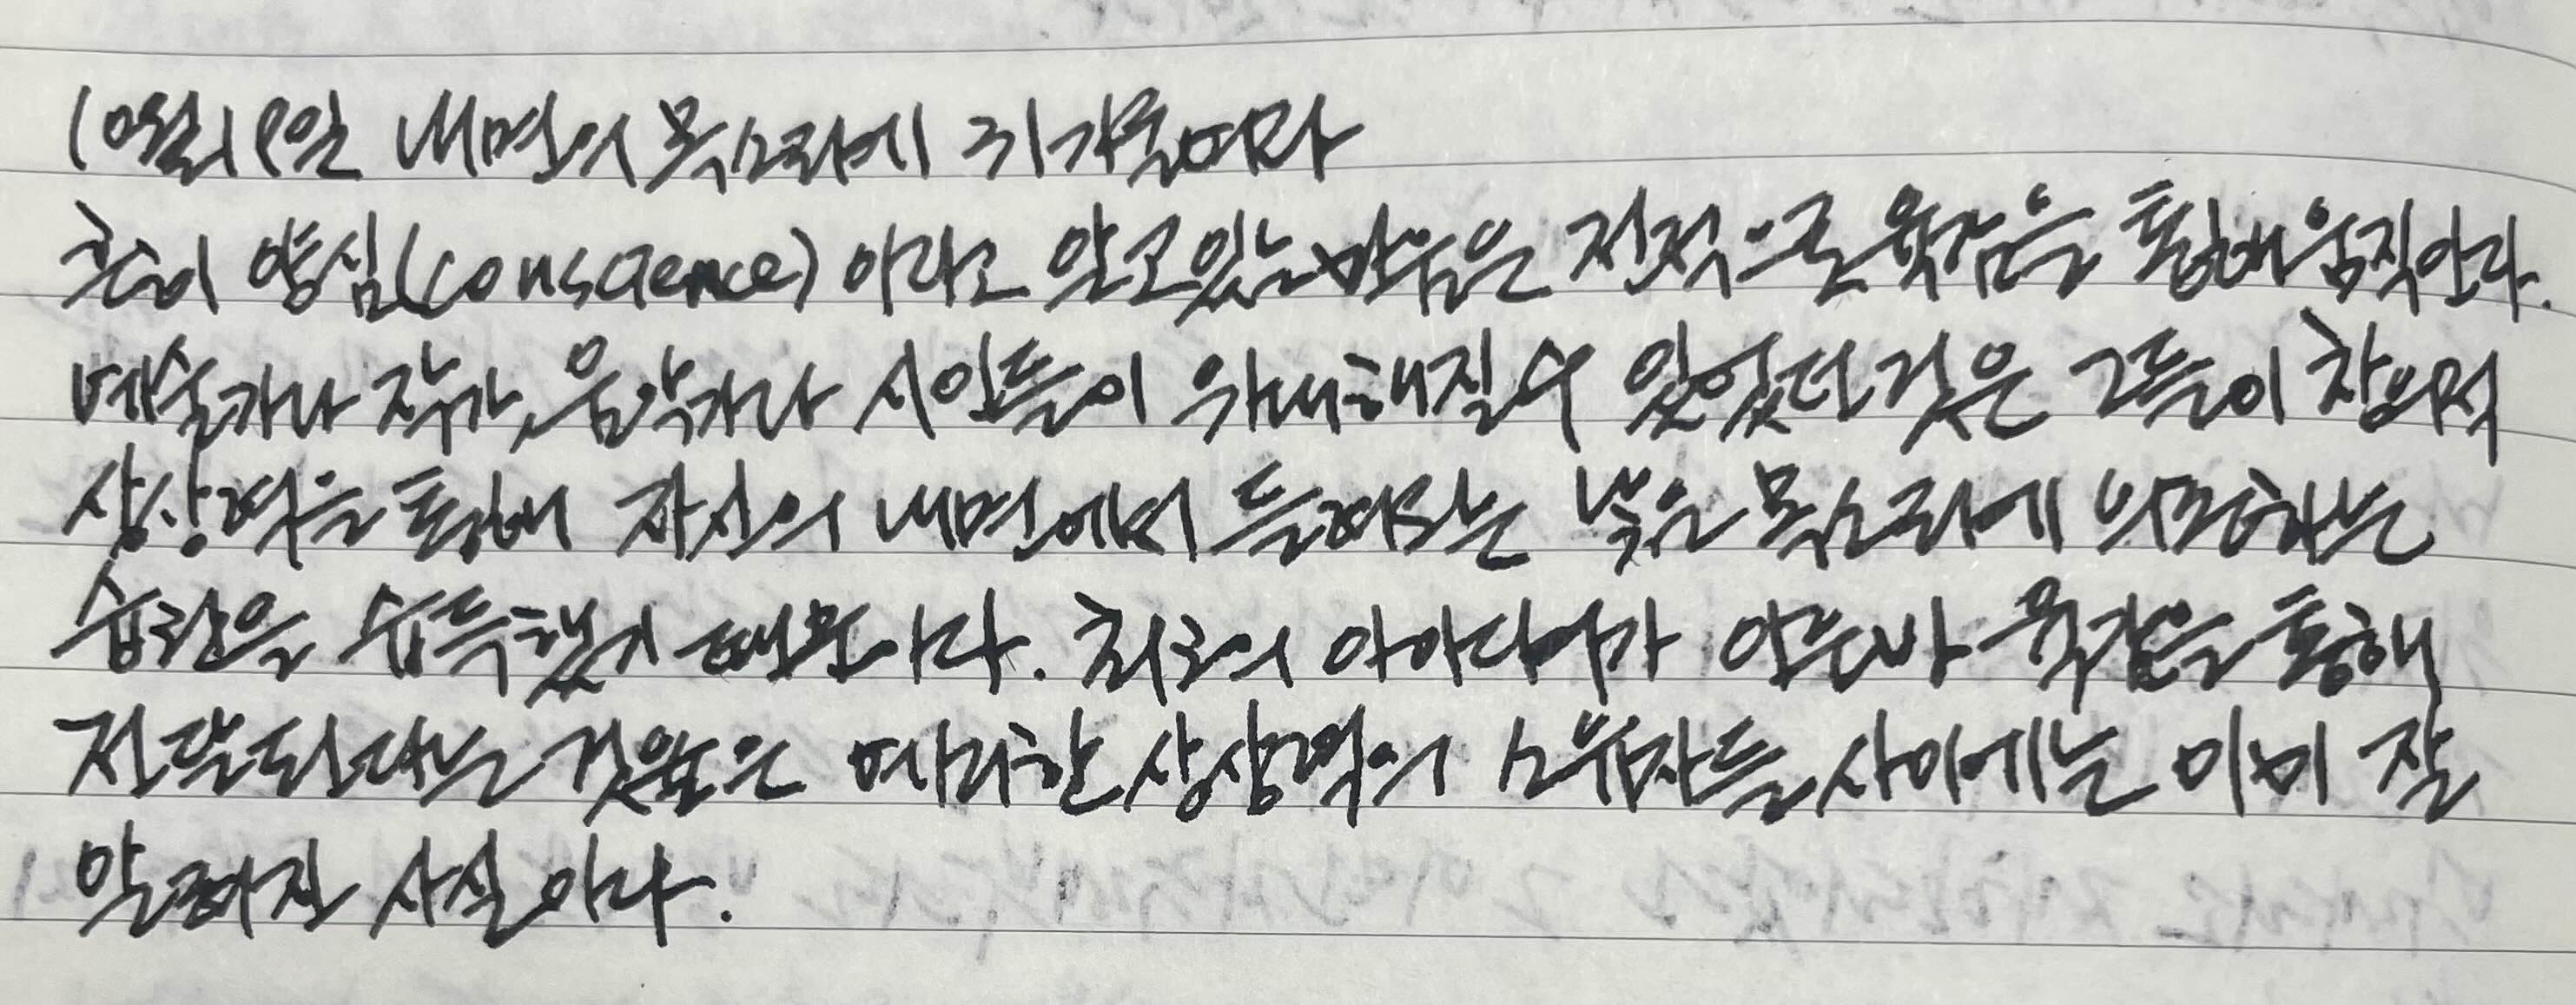 10월19일 내면의 목소리에 귀기울여라
흔히 양심(conscience)이라고 알고있는 마음은 전적으로 육감을 통해 움직인다.
예술가나 작가, 음악가나 시인들이 위대해질수 있었던 것은 그들이 창의적
상상력을 통해 자신의 내면에서 들려오는 낮은 목소리에 의존하는
습관을 습득했기 때문이다. 최고의 아이디어가 이른바 육감을 통해
전달된다는 것은 예리한 상상력의 소유자들 사이에는 이미 잘
알려진 사실이다.